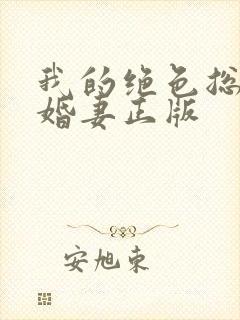 我的绝色总
婚妻正版
安旭东